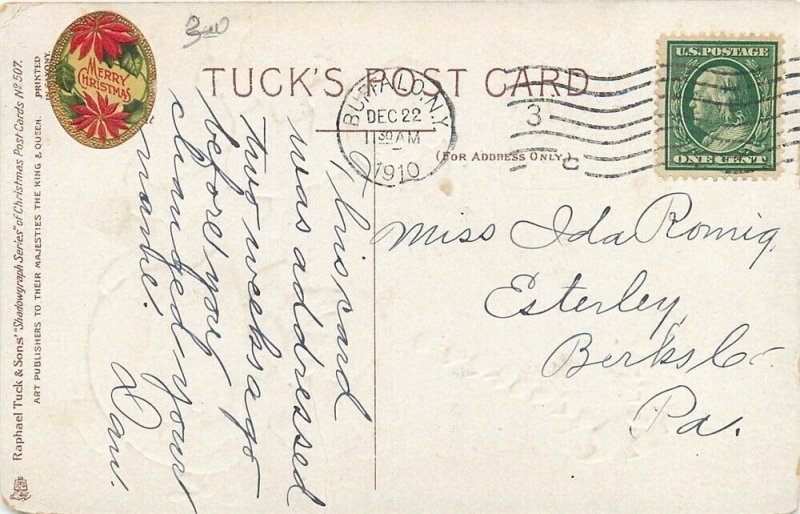 3.00
MERRY
CHRISTMAS
TUCK'S POST CARD
(FOR ADDRESS ONLY.)
BUFFALO, N.Y.
DEC 22
11 30 AM
1910
3
C
U.S. POSTAGE
ONE CENT
This card
was addressed
two weeks ago
before you
changed your
name!
Dan.
Miss Ida Romig,
Esterley,
Berks Co-
Pa.
Raphael Tuck & Sons' "Shadowgraph Series" of Christmas Post Cards Nº 507.
ART PUBLISHERS TO THEIR MAJESTIES THE KING & QUEEN.
PRINTED
IN SAXONY.